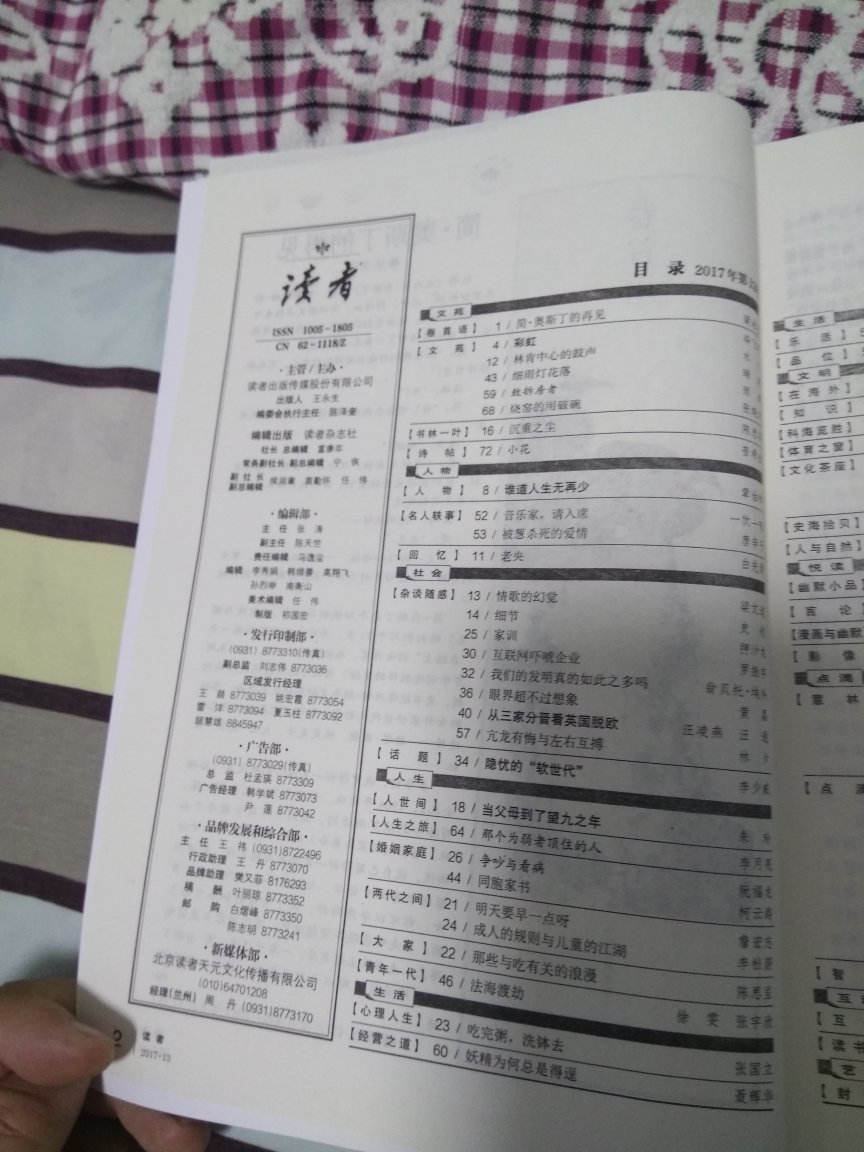 读者
ISSN 1005-1805
CN 62-1118/Z
·主管/主办·
读者出版传媒股份有限公司
出版人 王永生
编委会执行主任 陈泽奎
编辑出版 读者杂志社
社长 总编辑 富康年
常务副社长 副总编辑 宁恢
副社长 副总编辑 侯润章 袁勤怀 任伟
·编辑部·
主任 张涛
副主任 陈天竺
责任编辑 马逸尘
编辑 李秀娟 韩维善 高翔飞
孙烈举 南衡山
美术编辑 任伟
制版 祁国宏
·发行印制部·
(0931) 8773310(传真)
副总监 刘志伟 8773036
区域发行经理
王燚 8773039 姚宏霞 8773054
雷洋 8773094 夏玉柱 8773092
慧雄 8845947
·广告部·
(0931) 8773029(传真)
总监 杜孟瑛 8773309
广告经理 韩学斌 8773073
尹莲 8773042
·品牌发展和综合部·
主任 王祎 (0931)8722496
行政助理 王丹 8773070
品牌助理 樊又菲 8176293
稿酬 叶丽琼 8773352
邮购 白烟峰 8773350
陈志明 8773241
·新媒体部·
北京读者天元文化传播有限公司
(010)64701208
经理(兰州) 周丹 (0931)8773170
2 读者
2017·13
目录 2017年第
文苑
【卷首语】 1 / 简·奥斯丁的再见
【文苑】 4 / 彩虹
12 / 林肯中心的鼓声
43 / 细雨灯花落
59 / 致拆房者
68 / 烧窑的用破碗
【书林一叶】 16 / 沉重之尘
【诗帖】 72 / 小花
人物
【人物】 8 / 谁道人生无再少
【名人轶事】 52 / 音乐家,请入席
53 / 被葱杀死的爱情
【回忆】 11 / 老央
社会
【杂谈随感】 13 / 情歌的幻觉
14 / 细节
25 / 家训
30 / 互联网吓唬企业
32 / 我们的发明真的如此之多吗
36 / 眼界超不过想象
40 / 从三家分晋看英国脱欧 汪凌燕 汪逸
57 / 亢龙有悔与左右互搏
【话题】 34 / 隐忧的“软世代”
人生
【人世间】 18 / 当父母到了望九之年
【人生之旅】 64 / 那个为弱者顶住的人 李月亮
【婚姻家庭】 26 / 争吵与看病
44 / 同胞家书
【两代之间】 21 / 明天要早一点呀
24 / 成人的规则与儿童的江湖 李松蔚
【大家】 22 / 那些与吃有关的浪漫
【青年一代】 46 / 法海渡劫 徐雯 张宇欣
生活
【心理人生】 23 / 吃完粥,洗钵去 张国立
【经营之道】 60 / 妖精为何总是得逞 聂辉华
生活
【乐活】
【品位】
文明
【在海外】
【知识】
【科海览胜】
【体育之窗】
【文化茶座】
【史海拾贝】
【人与自然】
悦读
【幽默小品】
【言论】
【漫画与幽默
【影像
点滴
【意林
【点滴
【智
互
【互
【读书
艺
【封